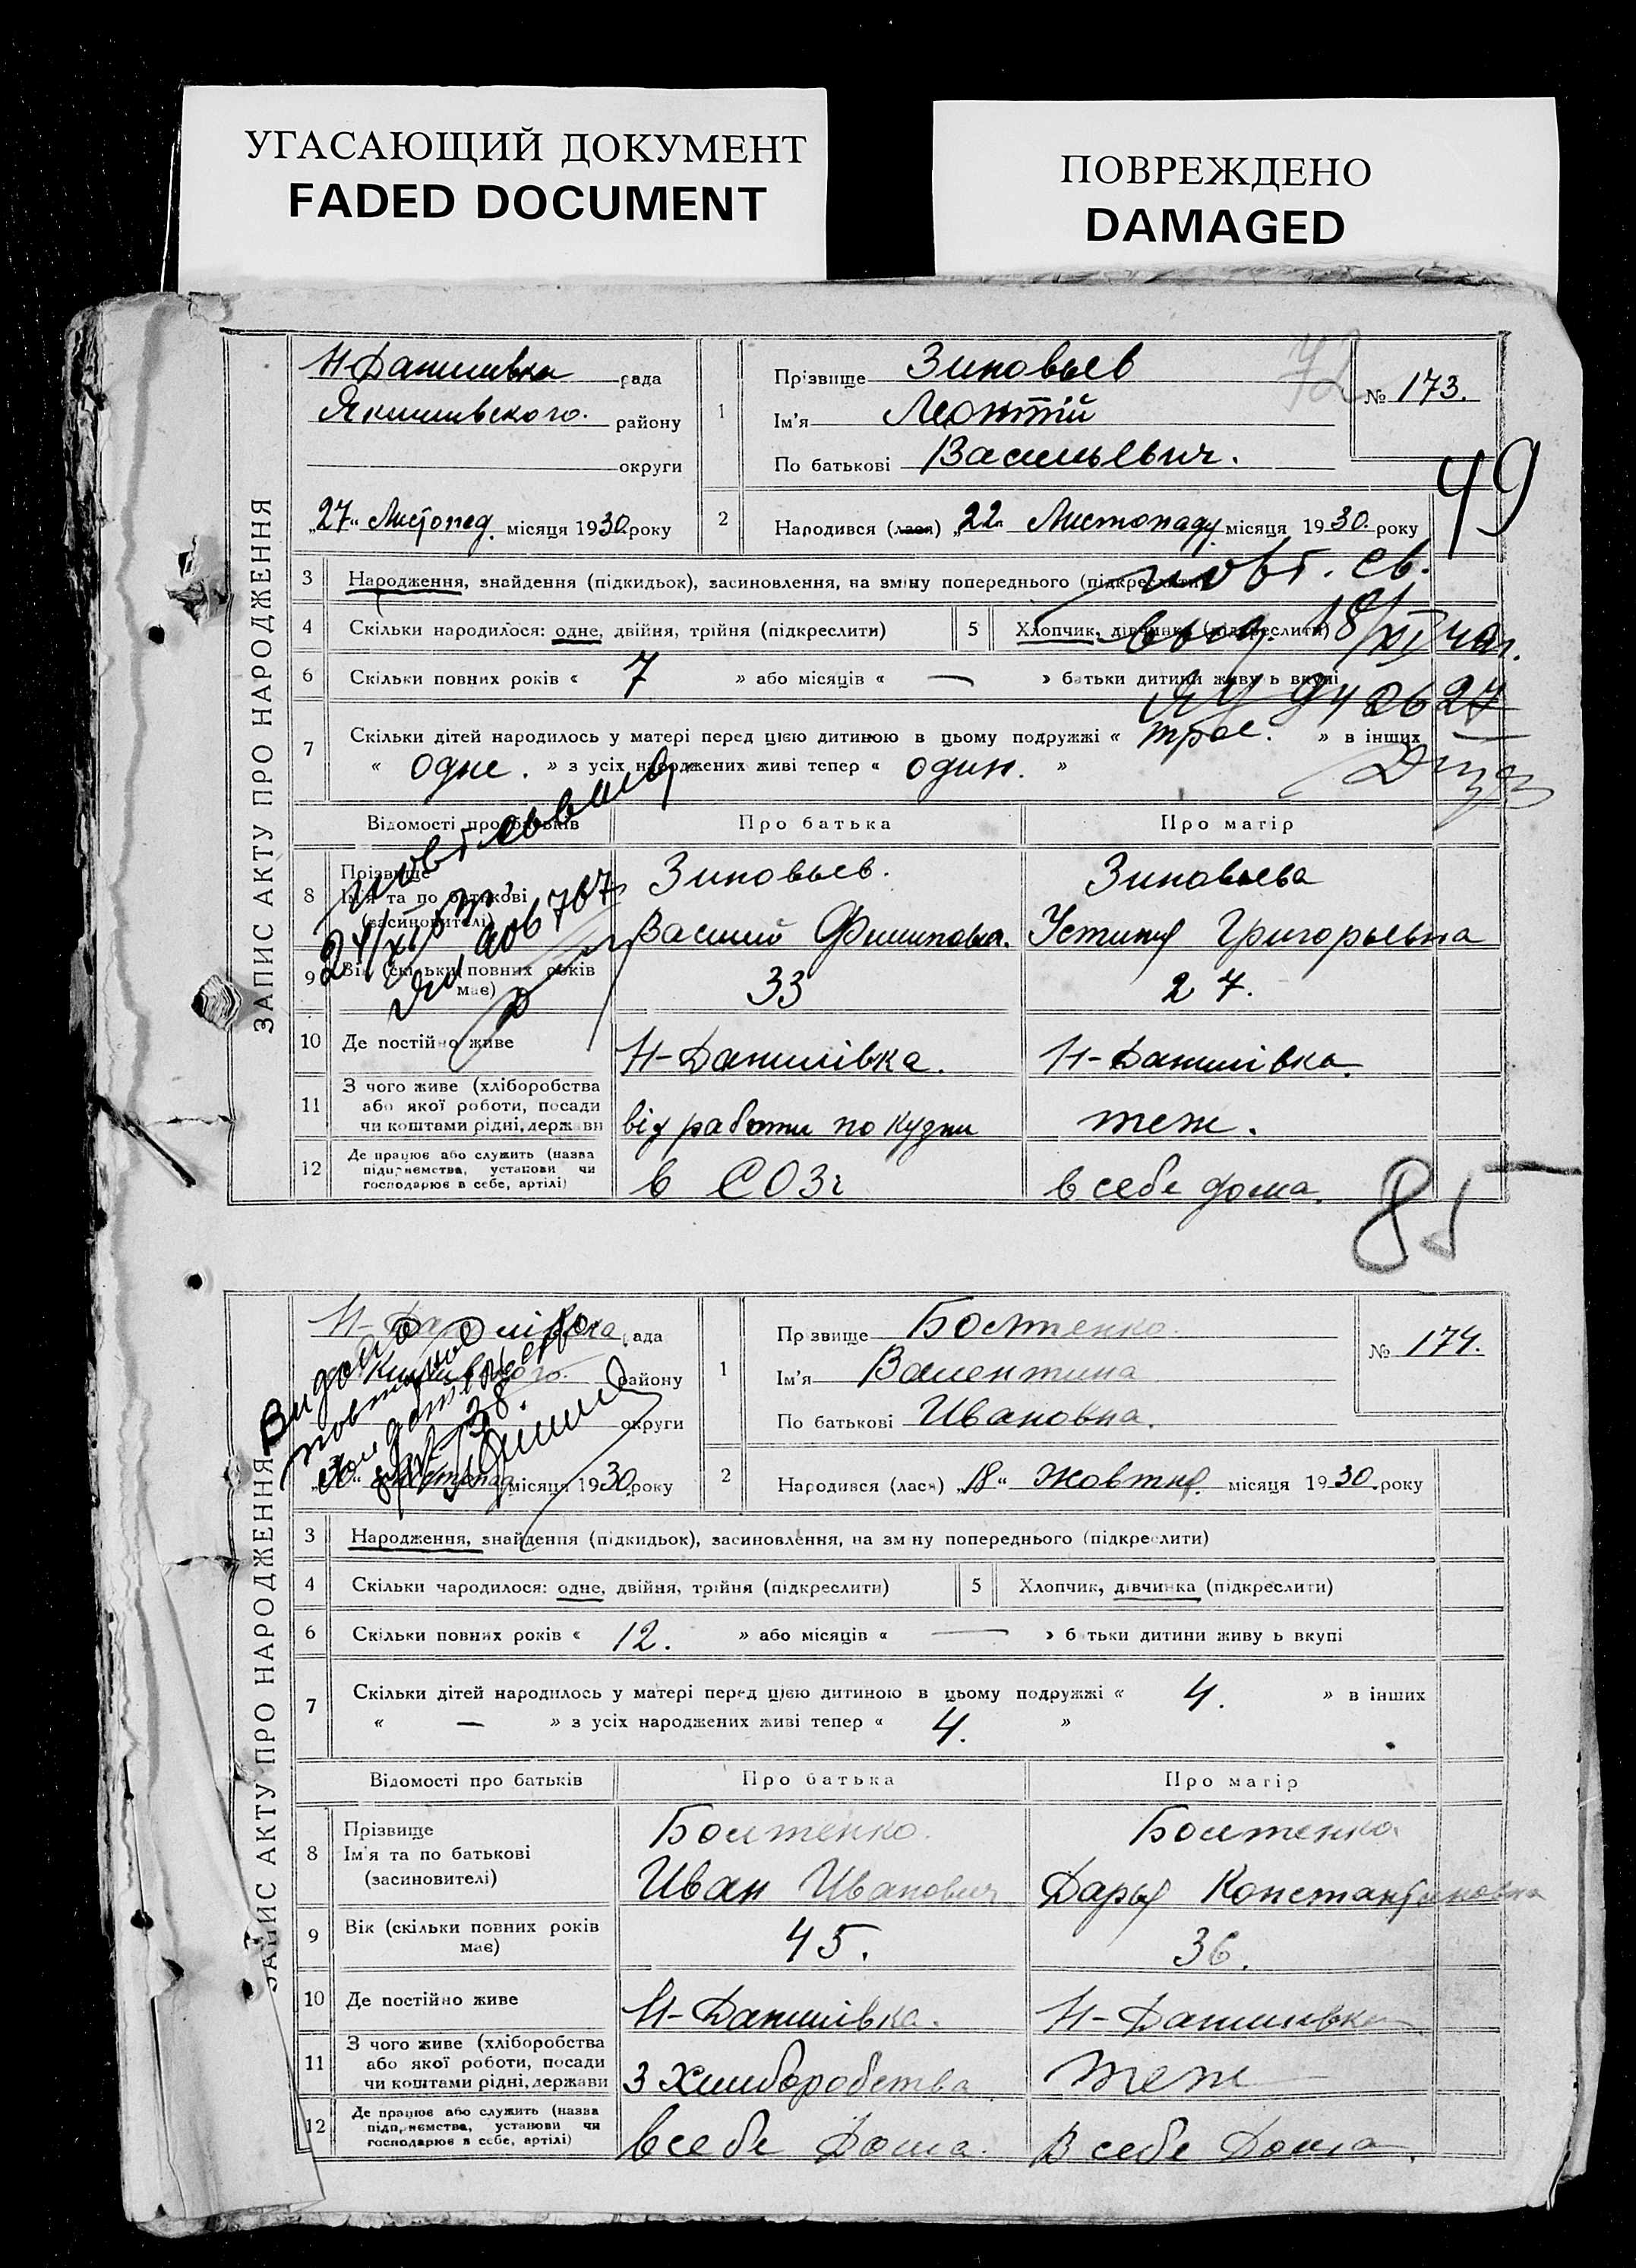 УГАСАЮЩИЙ ДОКУМЕНТ
FADED DOCUMENT
ПОВРЕЖДЕНО
DAMAGED
ЗАПИС АКТУ ПРО НАРОДЖЕННЯ
Н Данилівка рада
району
округи
„27“ Листопад місяця 1930 року
1 Прізвище Зиновьев
Ім'я Леонтій
По батькові Васильевич.
№ 173.
72
49
2 Народився (лася) „22“ Листопаду місяця 1930 року
3 Народження, знайдення (підкидьок), засиновлення, на зміну попереднього (підкреслити)
повт. св.
4 Скільки народилося: одне, двійня, трійня (підкреслити) 5 Хлопчик, дівчинка (підкреслити)
выд. 18/XI
6 Скільки повних років « 7 » або місяців « — » батьки дитини живуть вкупі
7 Скільки дітей народилось у матері перед цією дитиною в цьому подружжі « трое. » в інших
« одне. » з усіх народжених живі тепер « один. »
Відомості про батьків Про батька Про матір
8 Прізвище Зиновьев. Зиновьева
Ім'я та по батькові
(засиновителі) Василий Филипович. Устиня Григорьевна
9 Вік (скільки повних років має) 33 27.
10 Де постійно живе Н-Данилівка. Н-Данилівка.
11 З чого живе (хліборобства
або якої роботи, посади
чи коштами рідні, держави від работи по кузни теж.
12 Де працює або служить (назва
підприємства, установи чи
господарює в себе, артілі) в СОЗі в себе дома.
85
ЗАПИС АКТУ ПРО НАРОДЖЕННЯ
Н-Данилівка рада
району
округи
Видано
повторное
„30“ Листопад місяця 1930 року
1 Прізвище Болтенко
Ім'я Валентина
По батькові Ивановна.
№ 174.
2 Народився (лася) „18“ Жовтня місяця 1930 року
3 Народження, знайдення (підкидьок), засиновлення, на зміну попереднього (підкреслити)
4 Скільки народилося: одне, двійня, трійня (підкреслити) 5 Хлопчик, дівчинка (підкреслити)
6 Скільки повних років « 12. » або місяців « — » батьки дитини живуть вкупі
7 Скільки дітей народилось у матері перед цією дитиною в цьому подружжі « 4. » в інших
« — » з усіх народжених живі тепер « 4. »
Відомості про батьків Про батька Про матір
8 Прізвище Болтенко. Болтенко
Ім'я та по батькові
(засиновителі) Иван Иванович Дарья Константиновна
9 Вік (скільки повних років має) 45. 36.
10 Де постійно живе Н-Данилівка. Н-Данилівка
11 З чого живе (хліборобства
або якої роботи, посади
чи коштами рідні, держави З Хлиборобства теж
12 Де працює або служить (назва
підприємства, установи чи
господарює в себе, артілі) в себе Дома. В себе Дома.